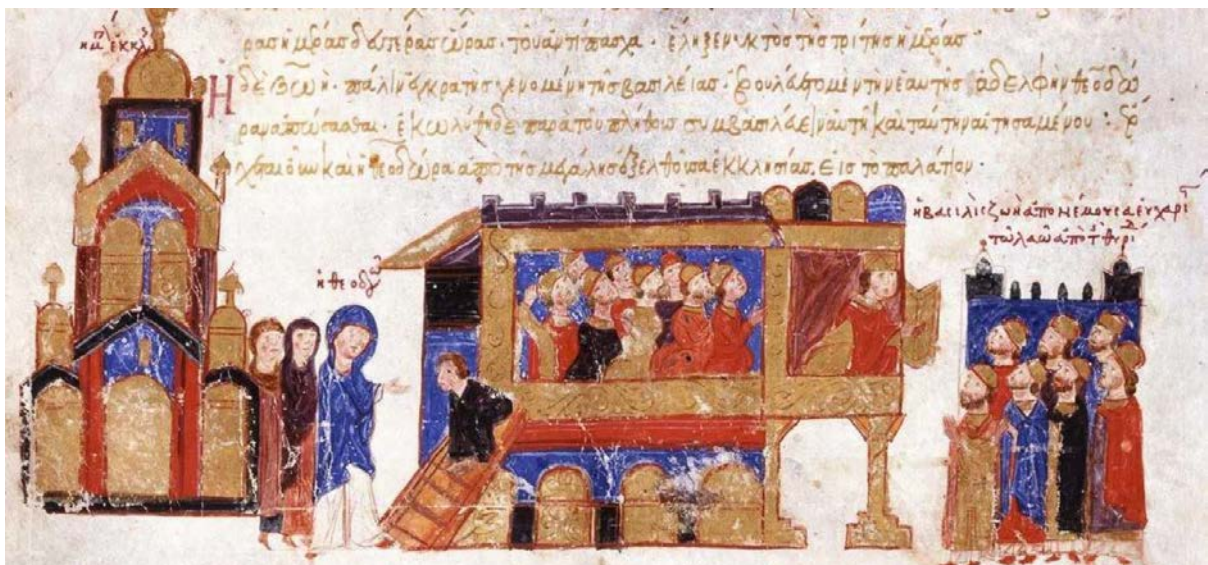 ἡ μ ἐκκλ
ρας ἡμέρας δευτέρας ὥρας· τοῦ ἀντίπασχα· ἔληξεν νυκτὸς τῆς τρίτης ἡμέρας·
Ἡ δὲ ζωὴ· πάλιν ἐγκρατὴς γενομένη τῆς βασιλείας· τὴν ἑαυτῆς ἀδελφὴν θεοδώ
ραν ἀπώσασθαι· ἐκωλύθη δὲ παρὰ τοῦ πλήθους συμβασιλεύειν αὐτῇ καὶ ταύτην αἰτησαμένου· ἔρ
χεται οὖν καὶ ἡ θεοδώρα ἀπὸ τῆς μεγάλης ἐξελθοῦσα ἐκκλησίας, εἰς τὸ παλάτιον·
ἡ θεοδω
ἡ βασιλὶς ζωὴ ἀπονέμουσα εὐχαρι
τῶ λαῶ ἀπὸ τ θυρί